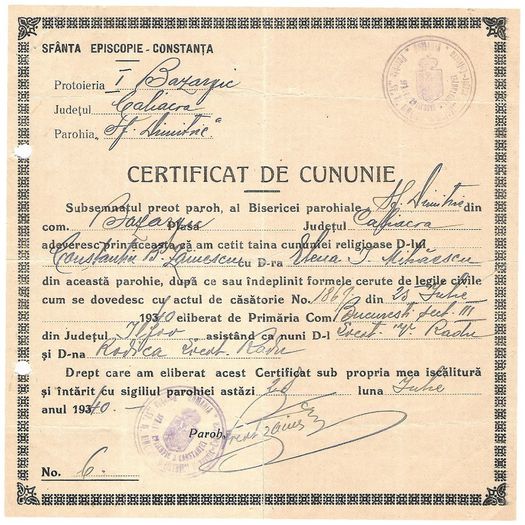 SFÂNTA EPISCOPIE - CONSTANȚA
Protoieria I Bazargic
Județul Caliacra
Parohia „Sf. Dimitrie"
CERTIFICAT DE CUNUNIE
Subsemnatul preot paroh, al Bisericei parohiale Sf. Dimitrie
din com. Bazargic Plasa Județul Caliacra
adeveresc prin aceasta că am cetit taina cununiei religioase D-lui
Constantin B. cu D-ra Elena I. Mihăescu
din această parohie, după ce sau îndeplinit formele cerute de legile civile
cum se dovedesc cu actul de căsătorie No. din 25 Iulie
1940 eliberat de Primăria Com. București sect. III
din Județul Ilfov asistând ca nuni D-l V. Radu
și D-na Rodica Radu
Drept care am eliberat acest Certificat sub propria mea iscălitură
și întărit cu sigiliul parohiei astăzi luna Iulie
anul 1940 -
Paroh,
No. 6.